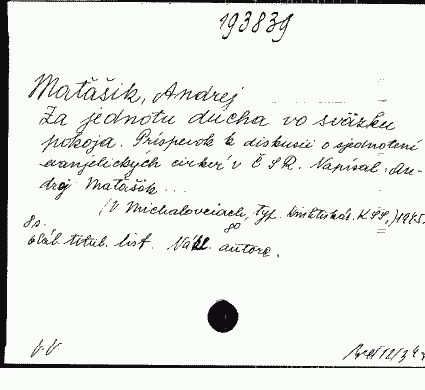 193839
Maťašik, Andrej
Za jednotu ducha vo sväzku
pokoja. Príspevok k diskusii o sjednotení
evanjelických cirkví v ČSR. Napísal An-
drej Maťašik...
(V Michalovciach, typ. 1945.)
8° 
8 s.
obál. titul. list. Nákl. autora.